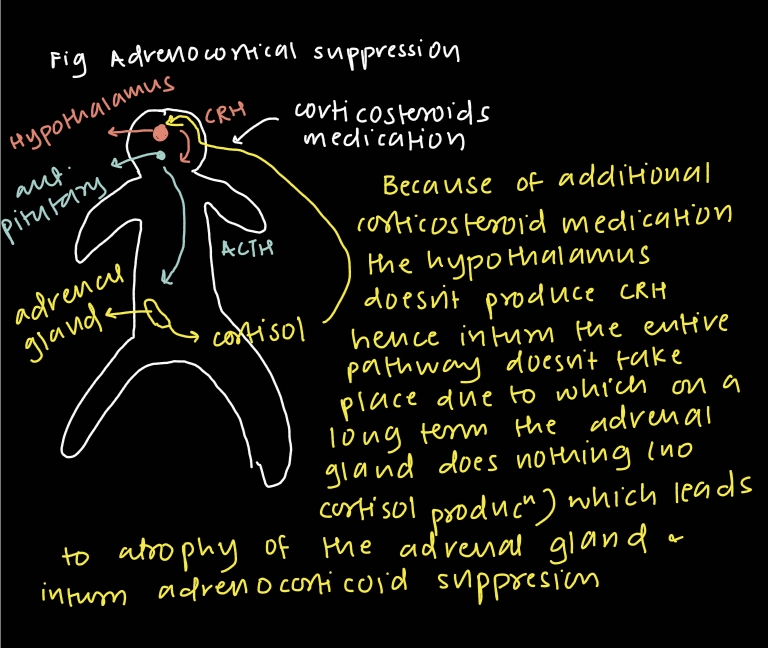 Fig Adrenocortical suppression
Hypothalamus
CRH
corticosteroids
medication
ant.
pitutary
Because of additional
corticosteroid medication
the hypothalamus
doesn't produce CRH
hence inturn the entire
pathway doesn't take
place due to which on a
long term the adrenal
gland does nothing (no
cortisol producⁿ) which leads
to atrophy of the adrenal gland &
inturn adrenocorticoid suppresion
ACTH
adrenal
gland
cortisol